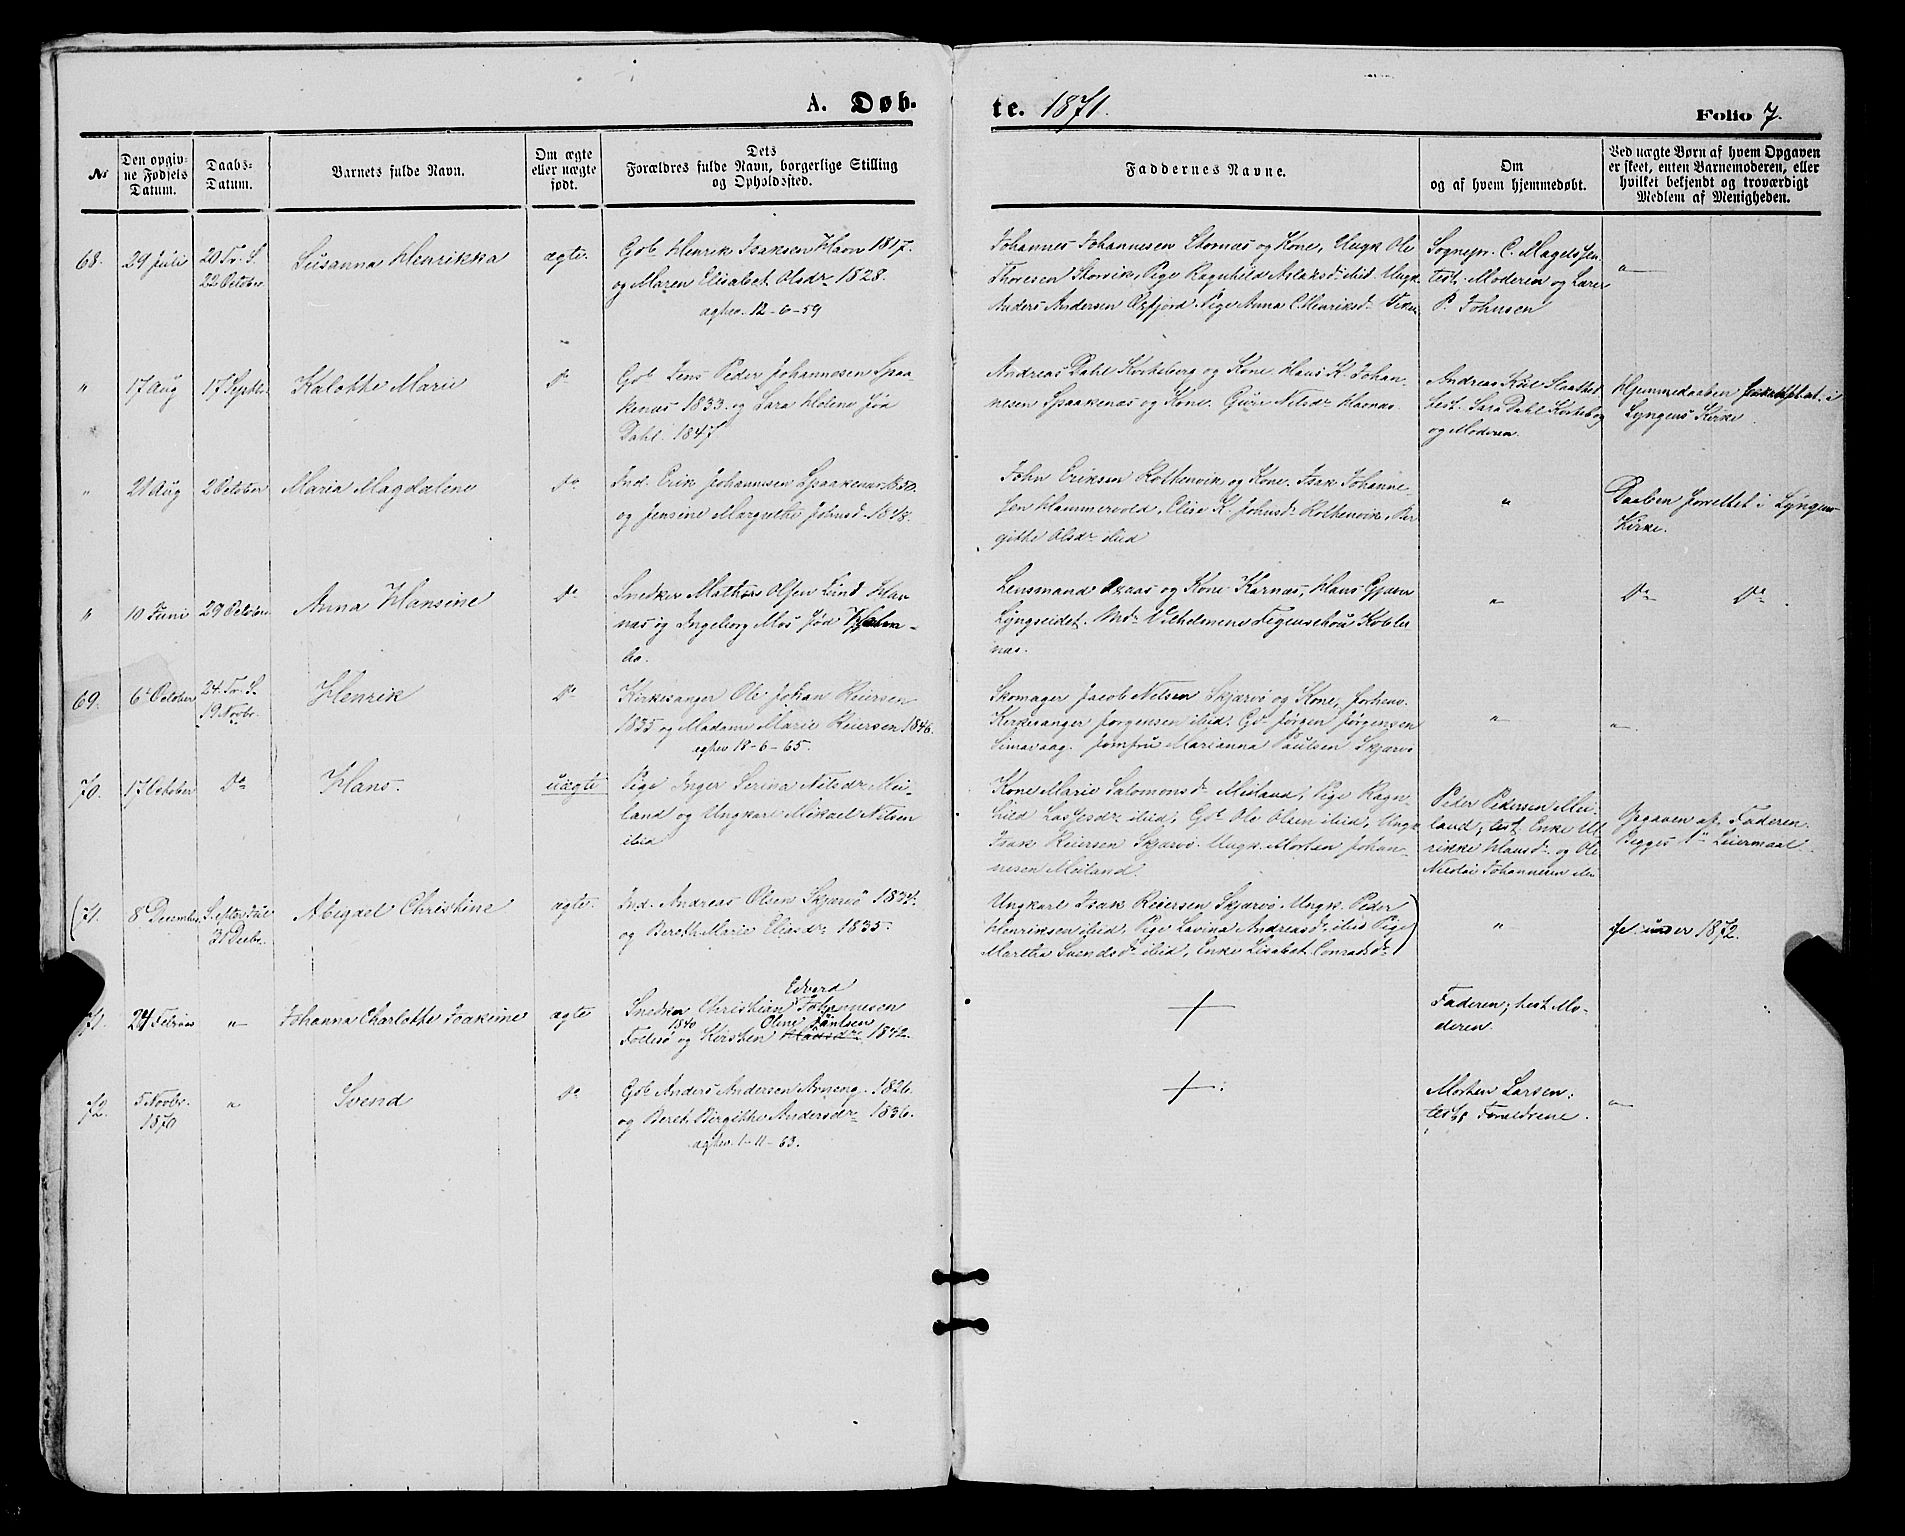 A. Døb-
te. 1871.
Folio 7.
No
Den opgiv-
ne Fødsels
Datum.
Daabs-
Datum.
Barnets fulde Navn.
Om ægte
eller uægte
født.
Dets
Forældres fulde Navn, borgerlige Stilling
og Opholdssted.
Faddernes Navne.
Om
og af hvem hjemmedøbt.
Ved uægte Børn af hvem Opgaven
er skeet, enten Barnemoderen, eller
hvilket bekjendt og troværdigt
Medlem af Menigheden.
68.
29 Juli
20 Tr. S.
22 October
Susanna Henrikka
ægte.
Gdb. Henrik Isaksen Havn 1817.
og Maren Elisabet Olsdr 1828.
aghv. 12-6-59
Johannes Johannesen Stornæs og Kone, Ungk. Ole
Thoresen Storvik, Pige Ragnhild Aslaksdr ibid. Ungk.
Anders Andersen Oxfjord. Pige Anna C. Henriksdr
Sognepr. C. Magelssen
test. Moderen og Lærer
P. Johnsen
"
"
17 Aug
17 Septbr
Kalotte Marie
do
Gdb Jens Peder Johannesen Spaa-
kenæs 1833 og Sara Helene Jøa
Dahl. 1847
Andreas Dahl Kosteberg og Kone. Hans K. Johan-
nesen Spaakenæs og Kone. Nilsdr
Andreas
test. Sara Dahl
og Moderen.
Hjemmedaaben i
Lyngens Kirke
"
21 Aug
2 October
Maria Magdalene
do
Ind. Erik Johannesen Spaakenæs 1850.
og Jensine Margrethe Johnsd. 1848.
John Eriksen Rothenvik og Kone. Isak Johanne-
sen Hammervold, Elise K. Johnsdr Rothenvik, Bir-
githe Olsdr ibid
"
Daaben forrettet i Lyngens
Kirke.
"
10 Juni
29 October
Anna Hansine
do
Snedker Mathis Olsen Lind Hav-
næs og Ingeborg Mos Jød
bo.
Lensmand og Kone Karnæs, Hans Gjæver
Lyngseidet. Md. Vilhelmene Figenschou Kobber-
næs.
"
do do
69.
6 October
24. Tr. S.
19 Novbr.
Henrik
do
Kirkesanger Ole Johan Reiersen
1835 og Madame Marie Reiersen 1846.
aghv 18-6-65.
Skomager Jacob Nilsen Skjærvø og Kone, forhenv.
Kirkesanger Jørgensen ibid. Gdb Jørgen Jørgensen
Simavaag. Jomfru Marianna Paulsen Skjærvø
"
"
70.
17 October
do
Hans.
uægte
Pige Inger Serina Nilsdr Mei-
land og Ungkarl Mikael Nilsen
ibid
Kone Marie Salomonsdr Meiland, Pige Ragn-
hild Lassesdr ibid, Gdb Ole Olsen ibid, Ungk.
Isak Reiersen Skjærvø. Ungk. Morten Johan-
nesen Meiland.
Peder Pedersen Mei-
land; test. Enke Ul-
rikke Hansdr og Ole
Nicolai Johannesen ibid
Opgaven af Faderen.
Begges 1ste Leiermaal
(71.
8 December
S. efter Jul
31 Decbr.
Abigael Christine
ægte.
Ind. Andreas Olsen Skjærvø 1834.
og Bereth Marie Eliasdr 1835.
Ungkarl Isak Reiersen Skjærvø. Ungk. Peder
Henriksen ibid. Pige Lavina Andreasdr ibid Pige
Martha Svendsdr ibid, Enke Lisabet Conradsdr)
"
se under 1872.
71.
24 Februar
"
Johanna Charlotte Joakime
ægte
Edvard
Snedker Christian Johannesen
1840 Oline Jentsen
Follesø og Kirsten Hansdr 1842.
+
Faderen; test. Mo-
deren.
72.
5 Novbr.
1870
"
Svend
do
Gdb Anders Andersen Arneng. 1826.
og Beret Bergitte Andersdr 1836.
aghv. 1-11-63.
+
Morten Larsen;
test. Forældrene.
"